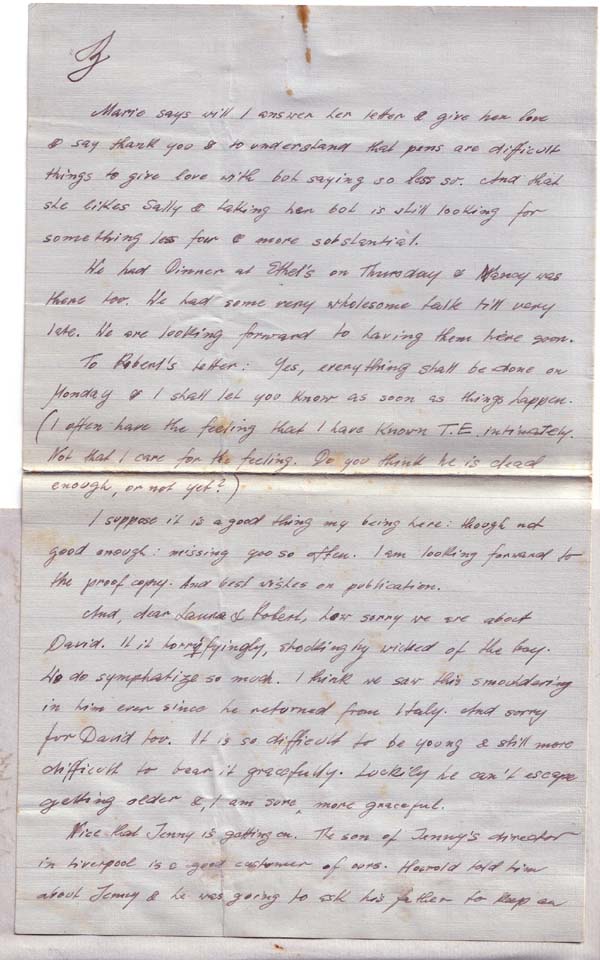 2
Marie says will I answer her letter & give her love
& say thank you & to understand that pens are difficult
things to give love with but saying so less so. And that
she likes Sally & taking her but is still looking for
something less four & more substantial.
We had Dinner at Ethel's on Thursday & Nancy was
there too. We had some very wholesome talk till very
late. We are looking forward to having them here soon.
To Robert's letter: Yes, everything shall be done on
Monday & I shall let you know as soon as things happen.
(I often have the feeling that I have known T.E. intimately.
Not that I care for the feeling. Do you think he is dead
enough, or not yet?)
I suppose it is a good thing my being here: though not
good enough: missing you so often. I am looking forward to
the proof copy. And best wishes on publication.
And, dear Laura & Robert, how sorry we are about
David. It it horryfyingly, shockingly wicked of the boy.
We do symphatize so much. I think we saw this smouldering
in him ever since he returned from Italy. And sorry
for David too. It is so difficult to be young & still more
difficult to bear it gracefully. Luckily he can't escape
getting older &, I am sure, more graceful.
Nice that Jenny is getting on. The son of Jenny's director
in Liverpool is a good customer of ours. Harold told him
about Jenny & he was going to ask his father to keep an